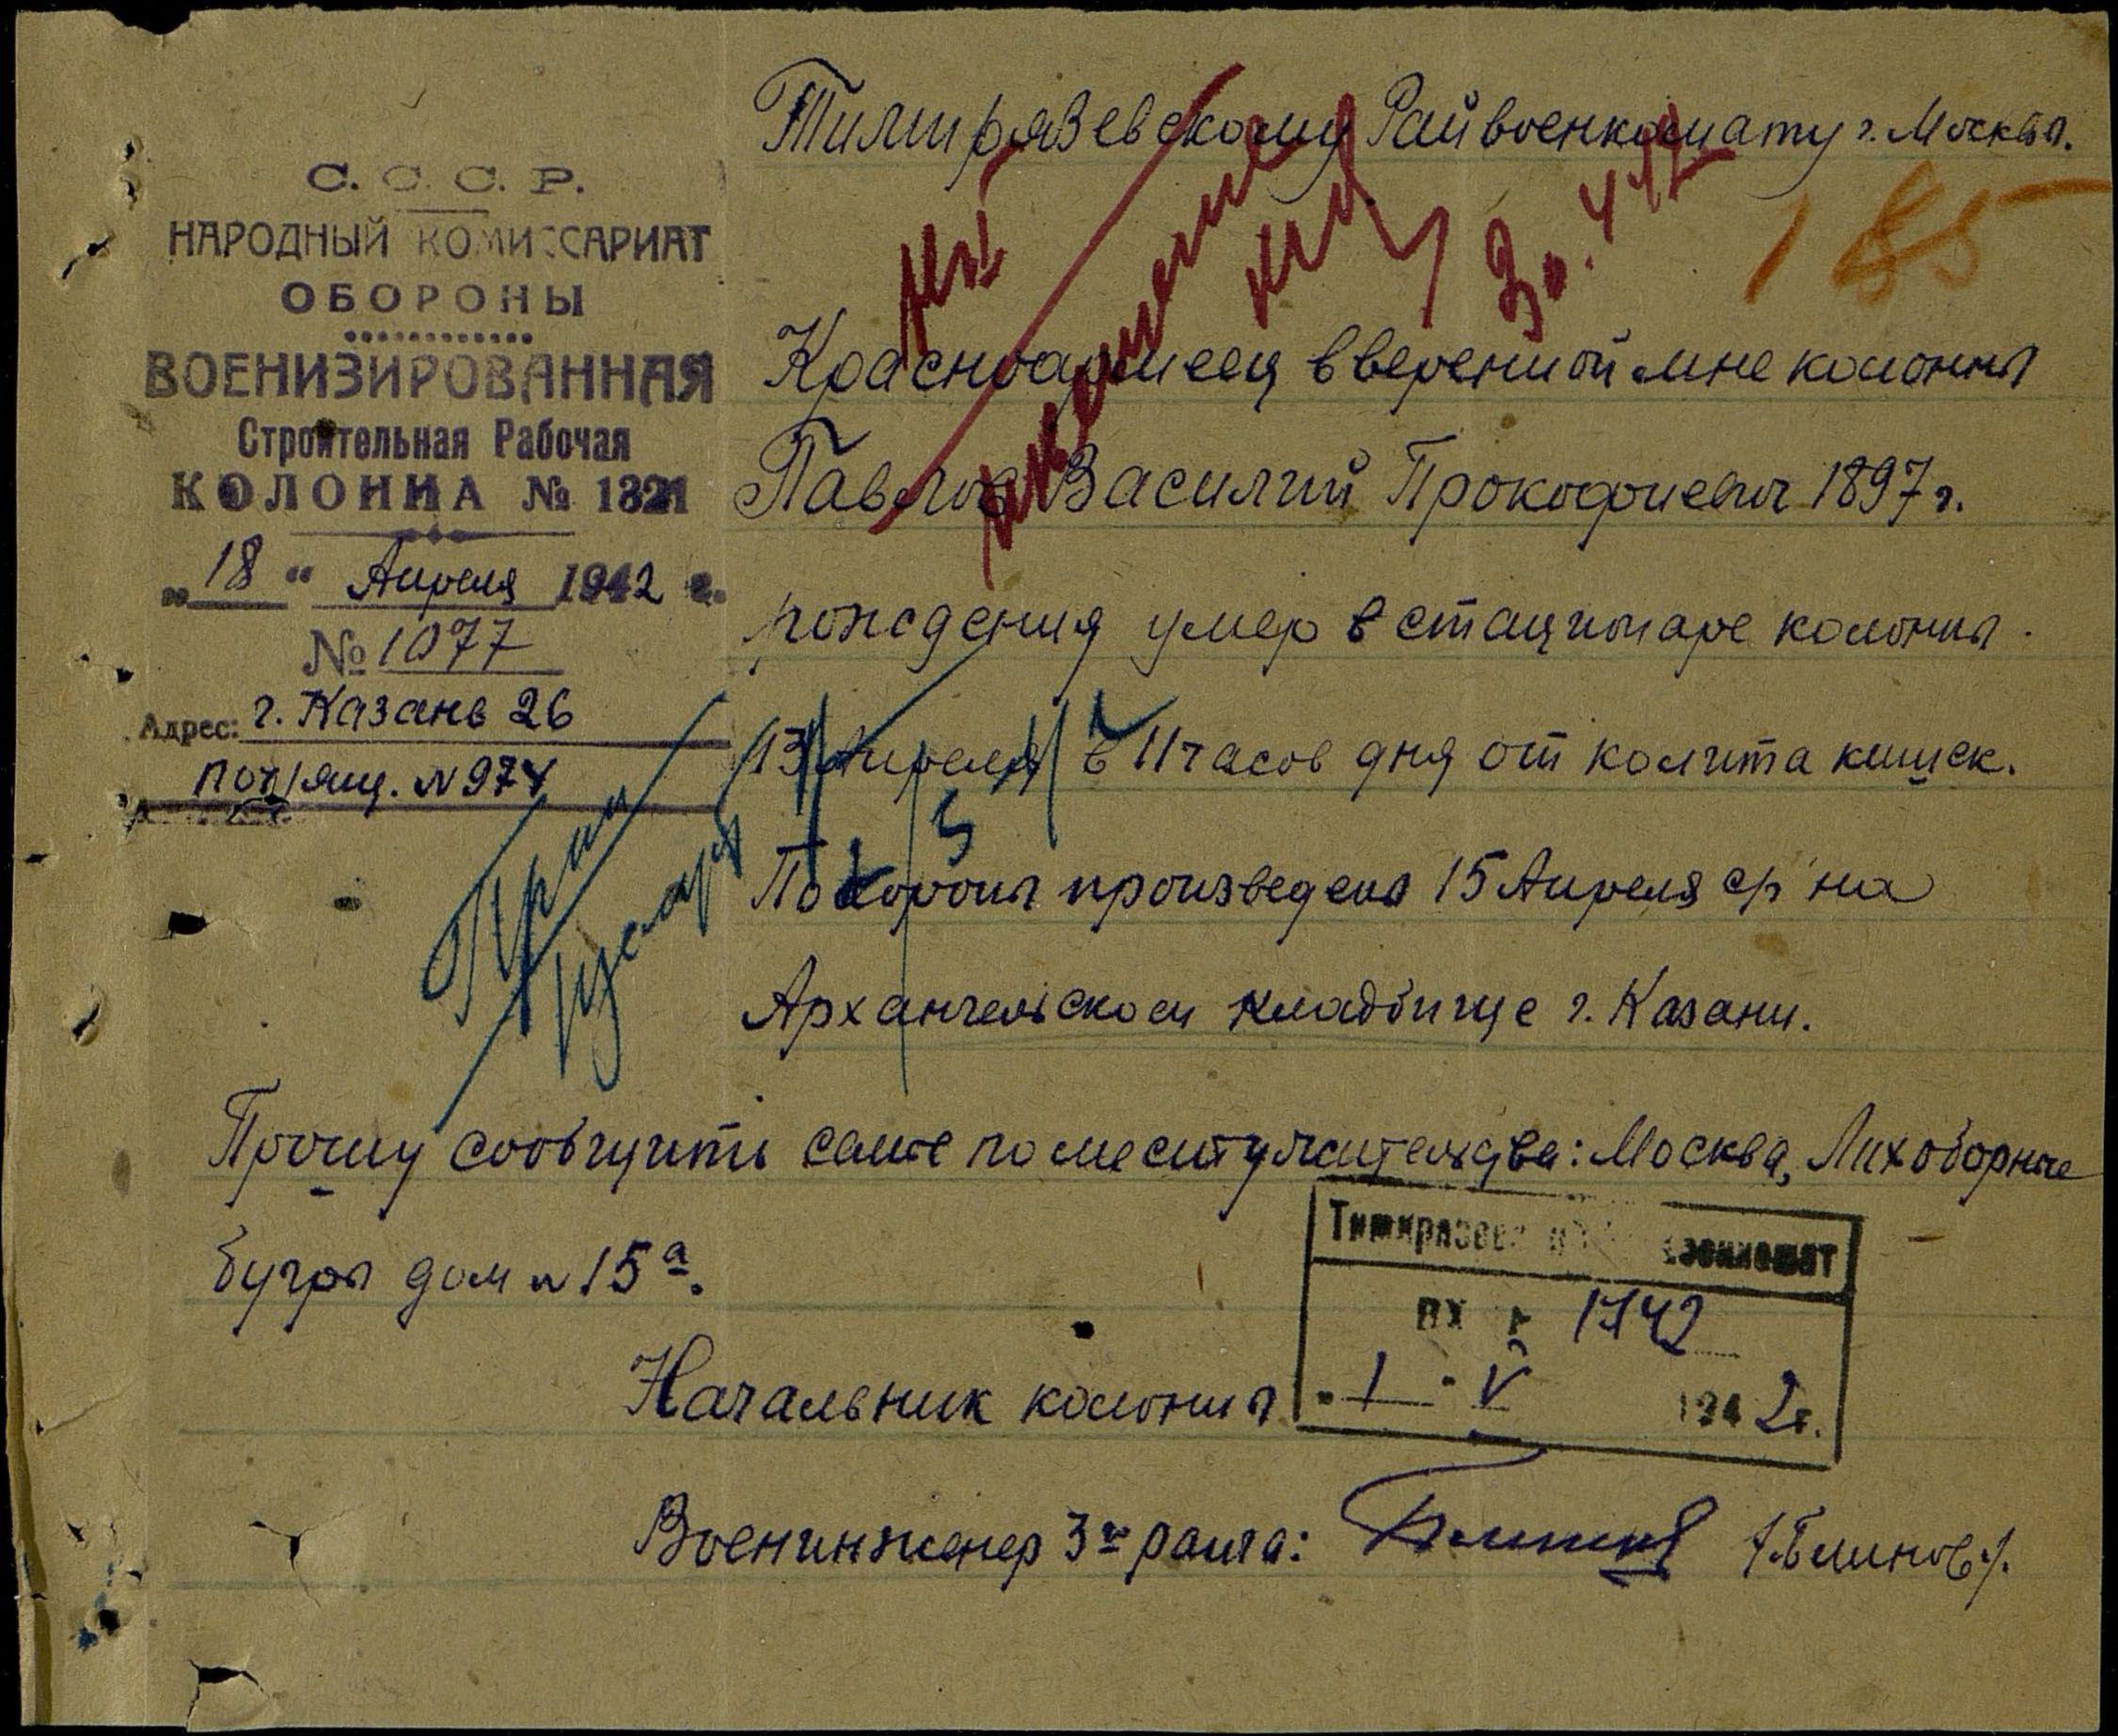 С. С. С. Р.
НАРОДНЫЙ КОМИССАРИАТ
ОБОРОНЫ
ВОЕНИЗИРОВАННАЯ
Строительная Рабочая
КОЛОННА № 1321
"18" Апреля 1942 г.
№ 1077
Адрес: г. Казань 26
поч/ящ. N 974
Тимирязевскому Райвоенкомату г. Москвы.
185
Красноармеец вверенной мне колонны
Павлов Василий Прокофиевич 1897 г.
рождения умер в стационаре колонны.
13 Апреля в 11 часов дня от колита кишек.
Похороны произведены 15 Апреля с/г на
Архангельском кладбище г. Казани.
Прошу сообщить семье по месту жительства: Москва, Лихоборные
бугры дом N 15а.
Начальник колонны
Военинженер 3го ранга: /Блинов/.
Тимирязевский Райвоенкомат
ВХ № 1742
"1" V 1942г.